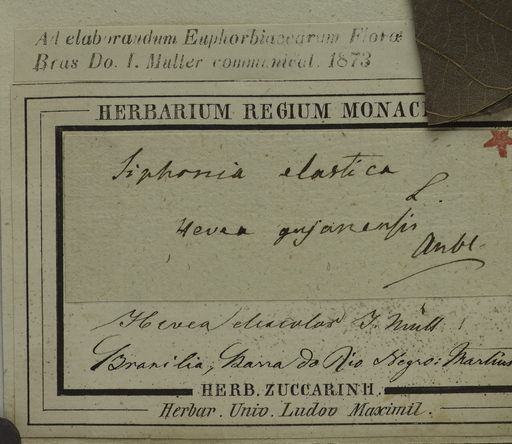 Ad elaborandum Euphorbiacearum Floræ
Bras Do. I. Muller communicat. 1873
HERBARIUM REGIUM MONAC
Siphonia elastica
L.
Hevea gujanensis
Aubl.
Hevea discolor J. Müll
Brasilia, Barra do Rio Negro: Martius
HERB. ZUCCARINII.
Herbar. Univ. Ludov Maximil.